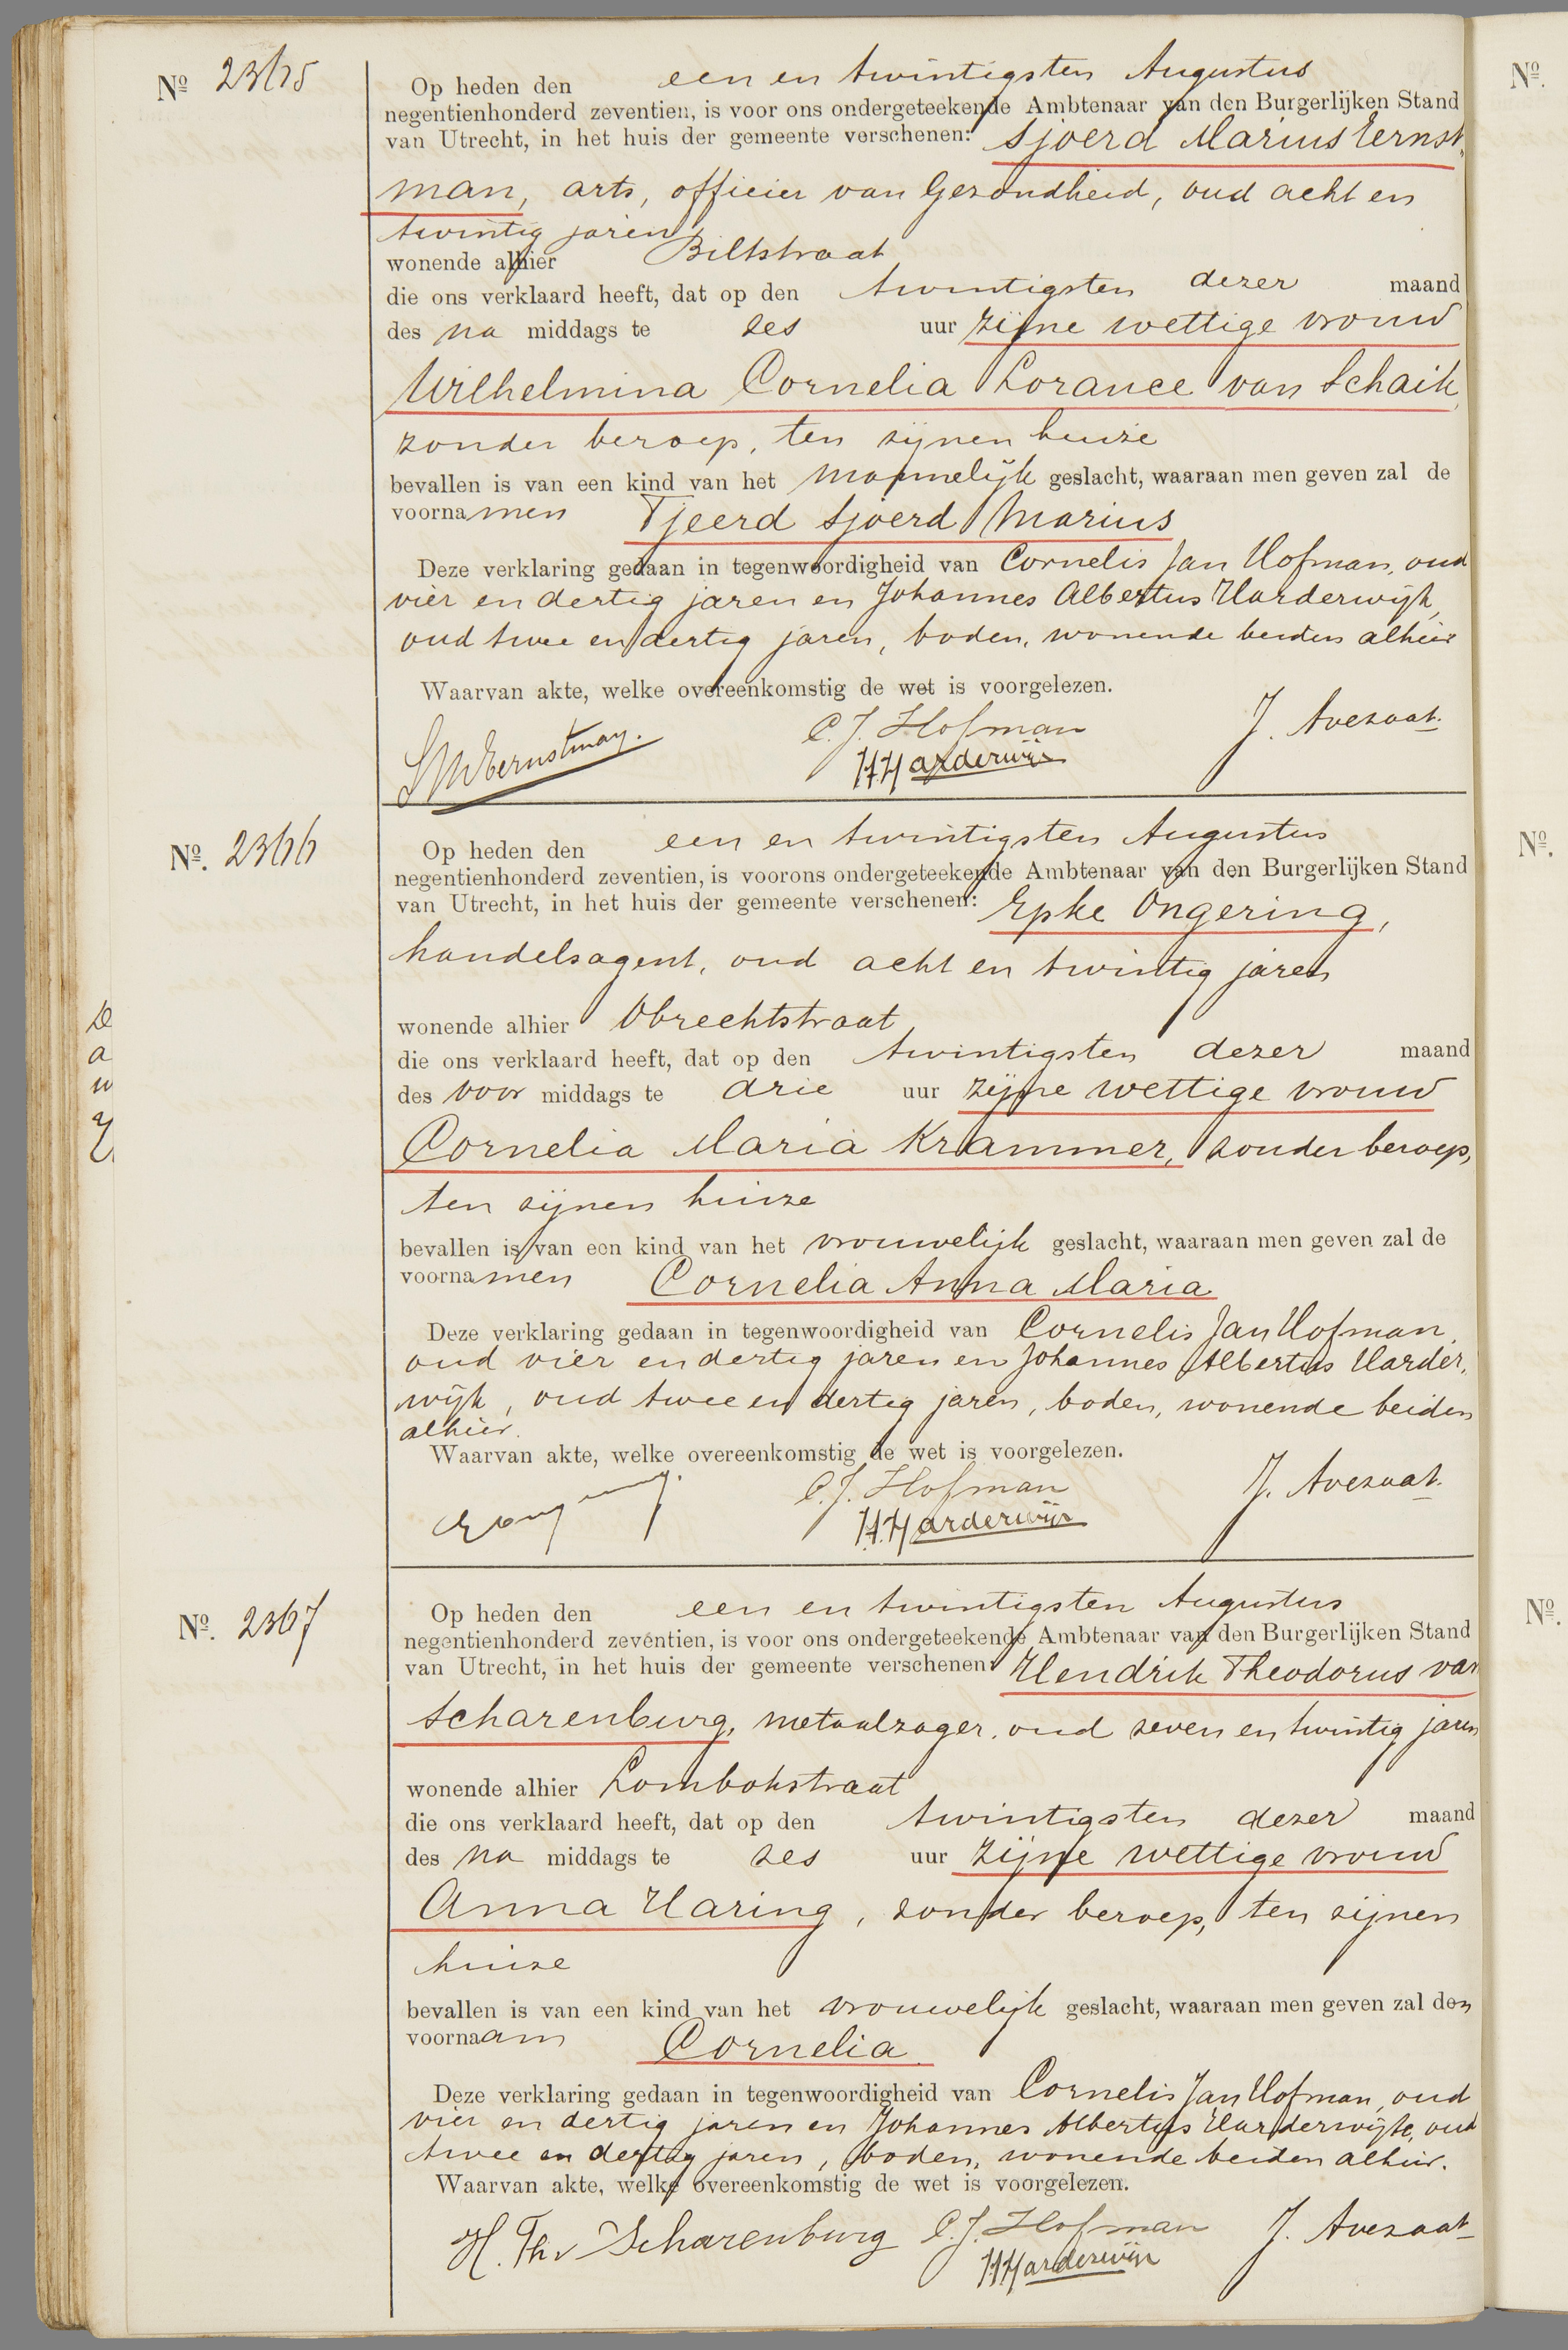 Nº 2365
Op heden den een en twintigsten Augustus
negentienhonderd zeventien, is voor ons ondergeteekende Ambtenaar van den Burgerlijken Stand
van Utrecht, in het huis der gemeente verschenen: Sjoerd Marius Ernst,
man, arts, officier van Gezondheid, oud acht en
twintig jaren
wonende alhier Biltstraat
die ons verklaard heeft, dat op den twintigsten dezer maand
des na middags te zes uur zijne wettige vrouw
Wilhelmina Cornelia Lorance van Schaik,
zonder beroep, ten zijnen huize
bevallen is van een kind van het mannelijk geslacht, waaraan men geven zal de
voornamen Tjeerd Sjoerd Marius
Deze verklaring gedaan in tegenwoordigheid van Cornelis Jan Hofman, oud
vier en dertig jaren en Johannes Albertus Harderwijk,
oud twee en dertig jaren, boden, wonende beiden alhier
Waarvan akte, welke overeenkomstig de wet is voorgelezen.
SMErnstman. C. J. Hofman J. Avezaat.
HHarderwijk
Nº. 2366
Op heden den een en twintigsten Augustus
negentienhonderd zeventien, is voorons ondergeteekende Ambtenaar van den Burgerlijken Stand
van Utrecht, in het huis der gemeente verschenen: Epke Ongering,
handelsagent, oud acht en twintig jaren
wonende alhier Obrechtstraat
die ons verklaard heeft, dat op den twintigsten dezer maand
des voor middags te drie uur zijne wettige vrouw
Cornelia Maria Krammer, zonder beroep,
ten zijnen huize
bevallen is van een kind van het vrouwelijk geslacht, waaraan men geven zal de
voornamen Cornelia Anna Maria
Deze verklaring gedaan in tegenwoordigheid van Cornelis Jan Hofman,
oud vier en dertig jaren en Johannes Albertus Harder,
wijk, oud twee en dertig jaren, boden, wonende beiden
alhier.
Waarvan akte, welke overeenkomstig de wet is voorgelezen.
C. J. Hofman J. Avezaat.
HHarderwijk
Nº. 2367
Op heden den een en twintigsten Augustus
negentienhonderd zeventien, is voor ons ondergeteekende Ambtenaar van den Burgerlijken Stand
van Utrecht, in het huis der gemeente verschenen: Hendrik Theodorus van
Scharenburg, metaalzager, oud zeven en twintig jaren
wonende alhier Lombokstraat
die ons verklaard heeft, dat op den twintigsten dezer maand
des na middags te zes uur zijne wettige vrouw
Anna Haring, zonder beroep, ten zijnen
huize
bevallen is van een kind van het vrouwelijk geslacht, waaraan men geven zal den
voornaam Cornelia
Deze verklaring gedaan in tegenwoordigheid van Cornelis Jan Hofman, oud
vier en dertig jaren en Johannes Albertus Harderwijk, oud
twee en dertig jaren, boden, wonende beiden alhier.
Waarvan akte, welke overeenkomstig de wet is voorgelezen.
H. Th v Scharenburg C. J. Hofman J. Avezaat
HHarderwijk
Nº.
Nº.
Nº.